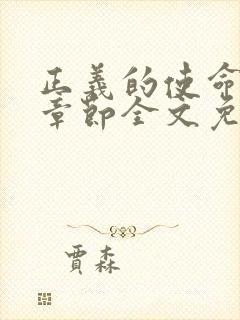 正義的使命
章節全文免
賈森